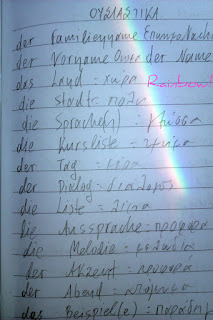 ΟΥΣΙΑΣΤΙΚΑ
der Familienname
der Vorname der Name
das Land = χώρα Rainbow
die Stadt = πόλη
die Sprache(n) = γλώσσα
die Kursliste =
der Tag =
der Dialog = διάλογος
die Liste = λίστα
die Aussprache = προφορά
die Melodie = μελωδία
der Akzent = προφορά
der Abend =
das Beispiel(e) =